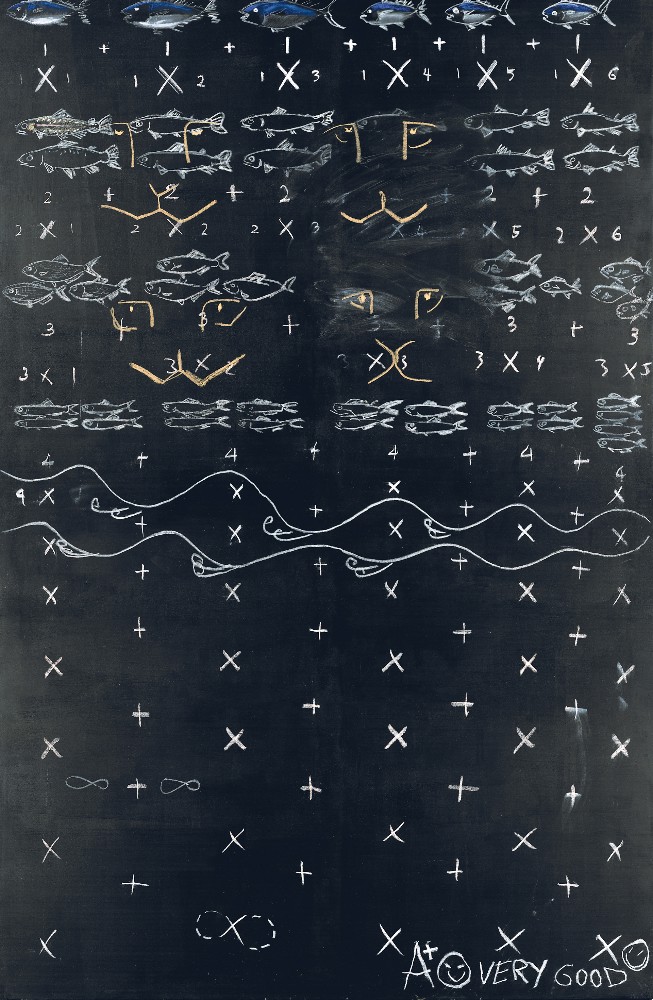 1 + 1 + 1 + 1 + 1 + 1
1 X 1 1 X 2 1 X 3 1 X 4 1 X 5 1 X 6
2 + 2 + 2 + 2 + 2
2 X 1 2 X 2 2 X 3 X 4 X 5 2 X 6
3 + 3 + 3 + 3
3 X 1 3 X 2 3 X 3 3 X 4 3 X 5
+ 4 + 4 + 4 + 4
4 X X X X X
+ + + +
X X X X X
+ + + +
X X X X X
+ + + +
X X X X X
+ + + +
X X X X X
∞ + ∞ + + +
X X X X X
+ + + +
X X X X X
A+ VERY GOOD